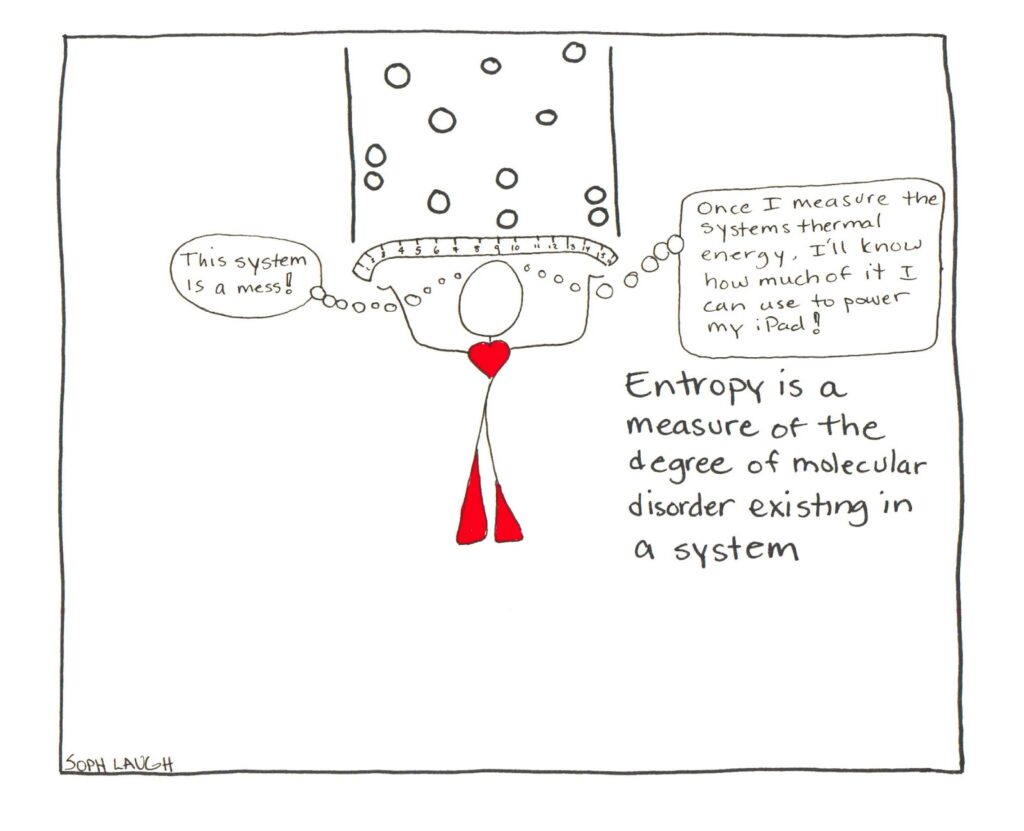 1 2 3 4 5 6 7 8 9 10 11 12 13 14 15 16
This system
is a mess!
Once I measure the
systems thermal
energy, I'll know
how much of it I
can use to power
my iPad!
Entropy is a
measure of the
degree of molecular
disorder existing in
a system
SOPH LAUGH